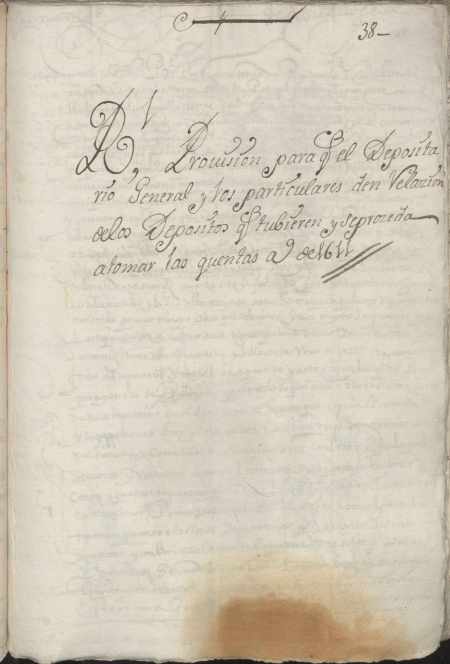 38-
Rl, Provision para q el Deposita
rio General y los particulares den Relacion
de los Depositos q tubieren y se proceda
a tomar las quentas aº de 1611